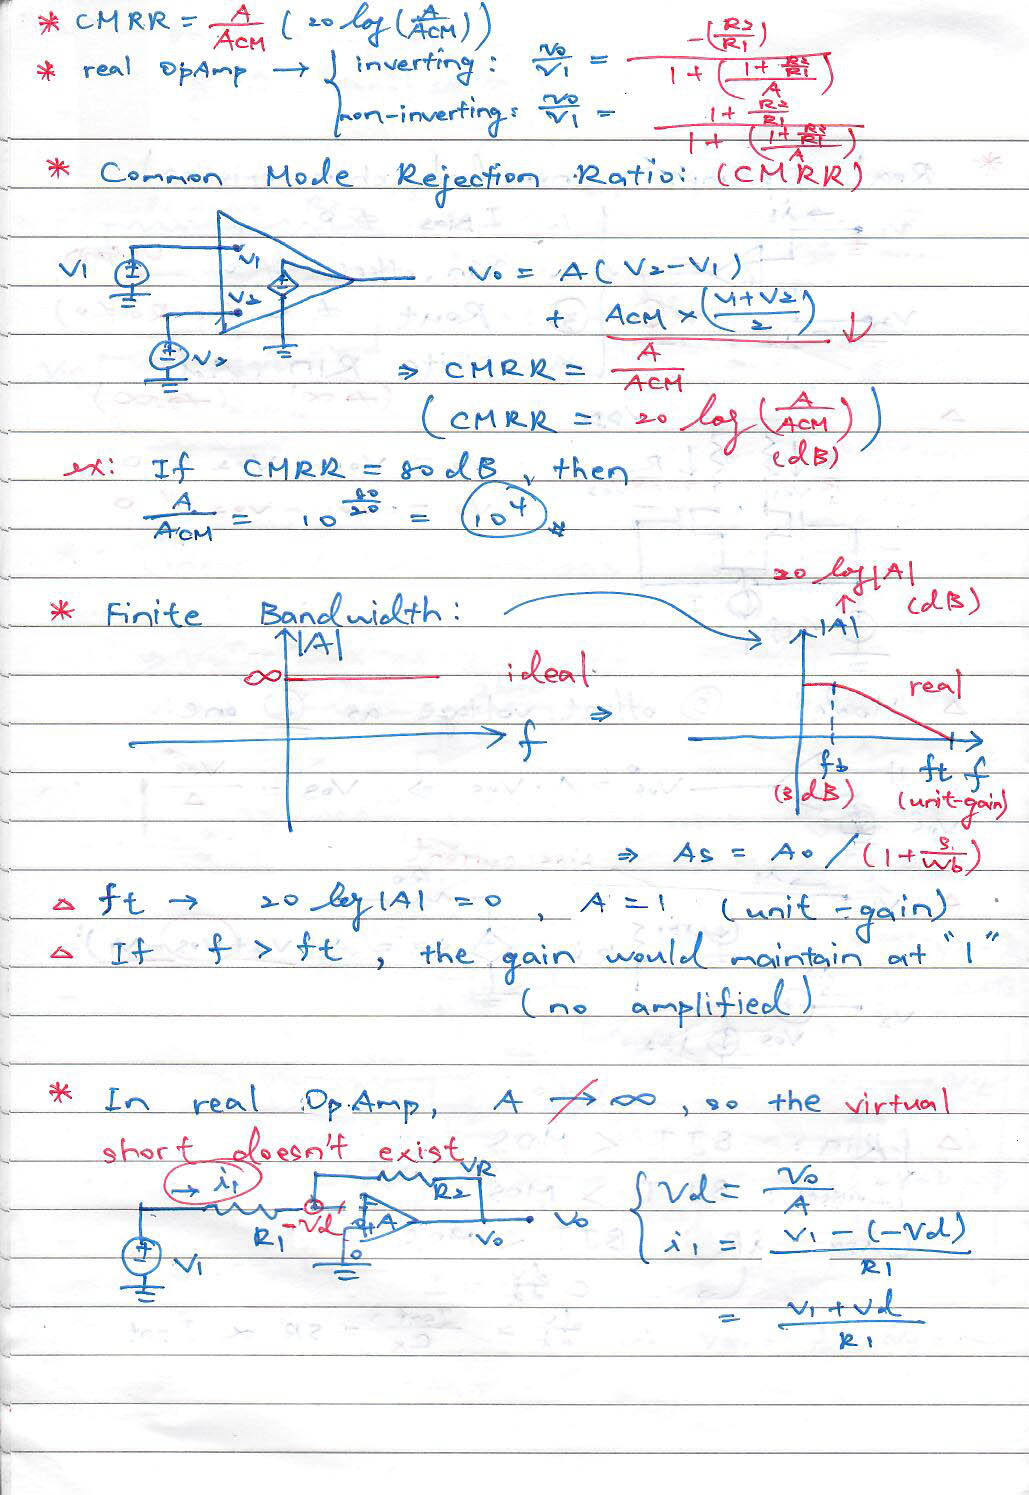 * CMRR = A/ACM ( 20 log(A/ACM))
* real OpAmp → { inverting : vo/v1 = -(R2/R1) / 1 + ((1 + R2/R1)/A)
non-inverting : vo/v1 = 1 + R2/R1 / 1 + ((1 + R2/R1)/A)
* Common Mode Rejection Ratio: (CMRR)
V1 V1 V2 V2
Vo = A( V2-V1)
+ ACM × (V1+V2/2) ↓
⇒ CMRR = A/ACM
( CMRR = 20 log (A/ACM) )
(dB)
ex: If CMRR = 80 dB, then
A/ACM = 10^80/20 = 10^4
* Finite Bandwidth :
20 log|A| (dB)
↑
|A| ∞ ideal f
⇒ |A| real fb ft f
(3 dB) (unit-gain)
⇒ As = Ao / (1 + s/Wb)
△ ft → 20 log |A| = 0 , A = 1 (unit-gain)
△ If f > ft , the gain would maintain at "1"
(no amplified)
* In real OpAmp, A → ∞ , so the virtual
short doesn't exist
→ i1 R1 -Vd R2 VR A 0 V1 Vo Vo
{ Vd = Vo/A
i1 = V1 - (-Vd) / R1
= V1 + Vd / R1